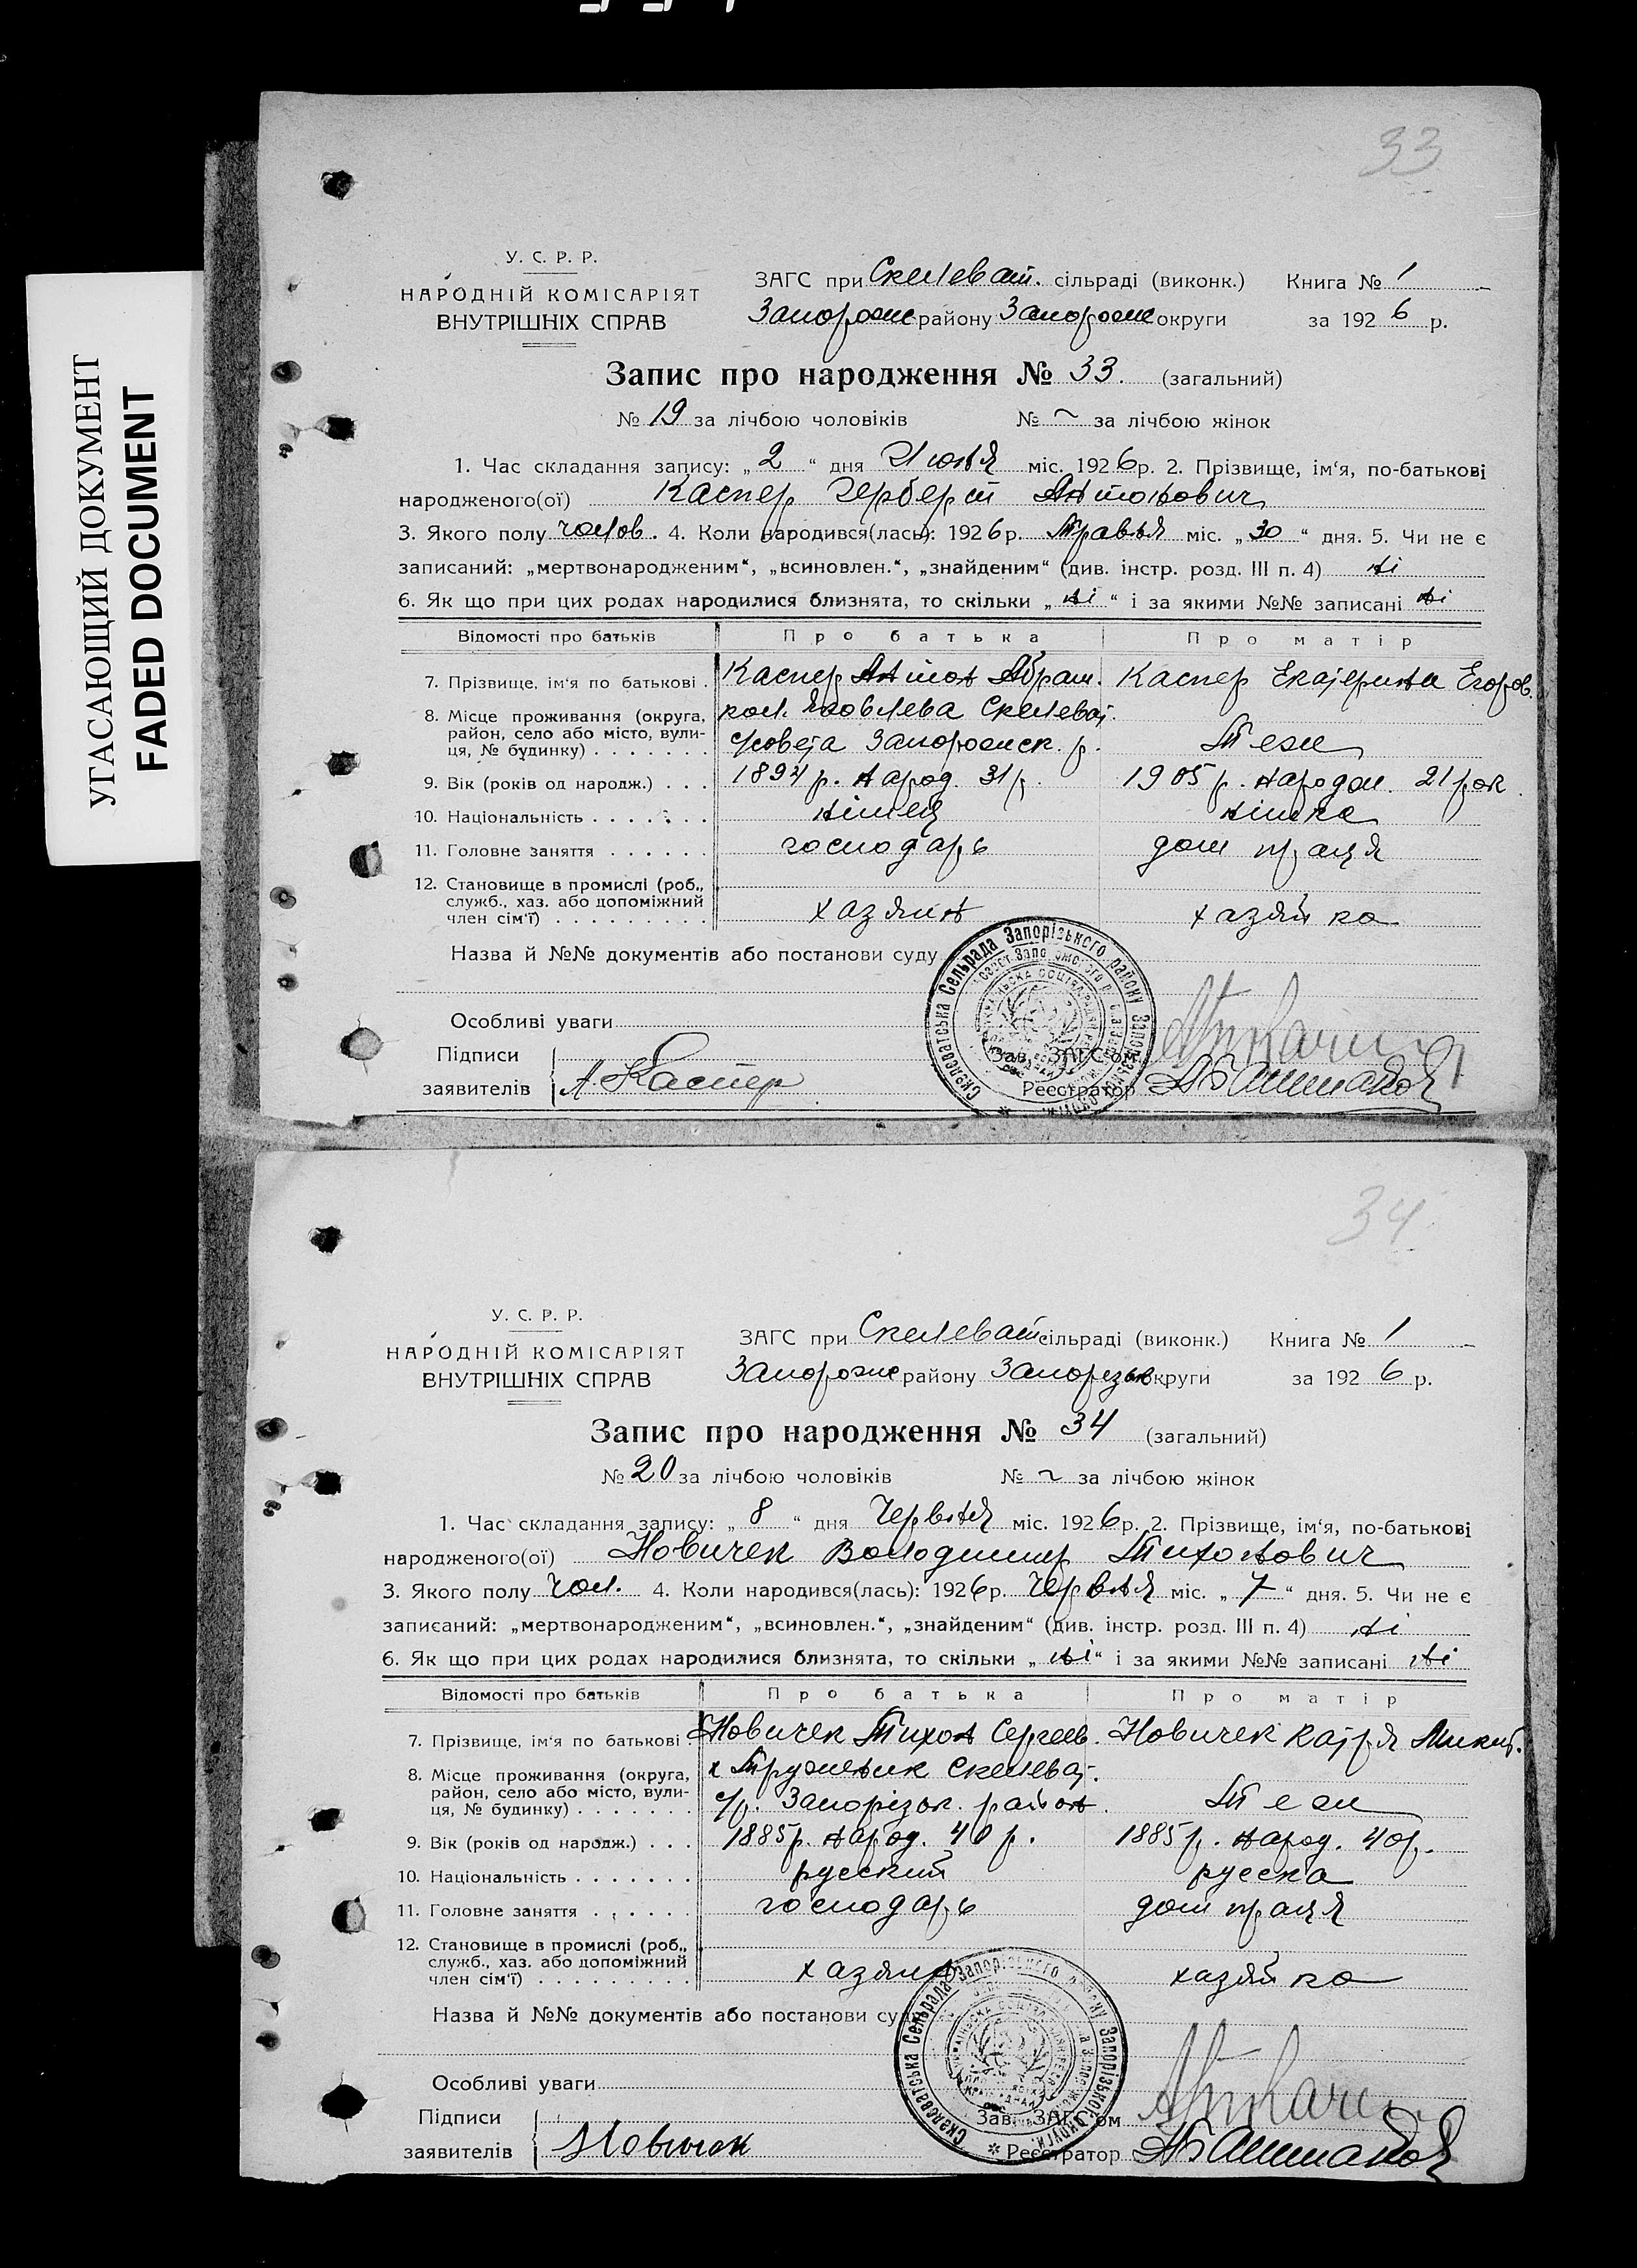 УГАСАЮЩИЙ ДОКУМЕНТ
FADED DOCUMENT
33
У. С. Р. Р.
НАРОДНІЙ КОМІСАРІЯТ
ВНУТРІШНІХ СПРАВ
ЗАГС при Скелеват. сільраді (виконк.) Книга № 1
Запорожс району Запорожс округи за 1926 р.
Запис про народження № 33. (загальний)
№ 19 за лічбою чоловіків № ~ за лічбою жінок
1. Час складання запису: „2“ дня Июня міс. 1926 р. 2. Прізвище, ім'я, по-батькові
народженого(ої) Каспер Герберт Антонович
3. Якого полу чолов. 4. Коли народився(лась): 1926 р. Травня міс. „30“ дня. 5. Чи не є
записаний: „мертвонародженим“, „всиновлен.“, „знайденим“ (див. інстр. розд. III п. 4) ні
6. Як що при цих родах народилися близнята, то скільки „ні“ і за якими №№ записані ні
Відомості про батьків Про батька Про матір
7. Прізвище, ім'я по батькові . Каспер Антон Абрам. Каспер Екатерина Егоров.
8. Місце проживання (округа, район, село або місто, вулиця, № будинку) . . . . . . . кол. Яковлева Скелеват.
с/совета Запорожск. р. Теж
9. Вік (років од народж.) . . . 1894 р. народ. 31 р. 1905 р. народж. 21 рок
10. Національність . . . . . . . німец німка
11. Головне заняття . . . . . . господарь дом праця
12. Становище в промислі (роб., служб., хаз. або допоміжний член сім'ї) . . . . . . . . . хазяин хазяйка
Назва й №№ документів або постанови суду
Особливі уваги
Підписи
заявителів А. Каспер
Зав. ЗАГС'ом
Реєстратор
Скелеватська Сельрада Запорізького району Запорізької округи.
34
У. С. Р. Р.
НАРОДНІЙ КОМІСАРІЯТ
ВНУТРІШНІХ СПРАВ
ЗАГС при Скелеват сільраді (виконк.) Книга № 1
Запорожс району Запорізьк округи за 1926 р.
Запис про народження № 34 (загальний)
№ 20 за лічбою чоловіків № ~ за лічбою жінок
1. Час складання запису: „8“ дня Червня міс. 1926 р. 2. Прізвище, ім'я, по-батькові
народженого(ої) Новичек Володимир Тихонович
3. Якого полу чол. 4. Коли народився(лась): 1926 р. Червня міс. „7“ дня. 5. Чи не є
записаний: „мертвонародженим“, „всиновлен.“, „знайденим“ (див. інстр. розд. III п. 4) ні
6. Як що при цих родах народилися близнята, то скільки „ні“ і за якими №№ записані ні
Відомості про батьків Про батька Про матір
7. Прізвище, ім'я по батькові . Новичек Тихон Сергеев. Новичек Катря Микит.
8. Місце проживання (округа, район, село або місто, вулиця, № будинку) . . . . . . . х Труженик Скелеват.
с/р. Запорізьк. район. Теж
9. Вік (років од народж.) . . . 1885 р. народ. 40 р. 1885 р. народ. 40 р.
10. Національність . . . . . . . русский русска
11. Головне заняття . . . . . . господарь дом праця
12. Становище в промислі (роб., служб., хаз. або допоміжний член сім'ї) . . . . . . . . . хазяин хазяйка
Назва й №№ документів або постанови суду
Особливі уваги
Підписи
заявителів
Зав. ЗАГС'ом
Реєстратор
Скелеватська Сельрада Запорізького району Запорізької округи.